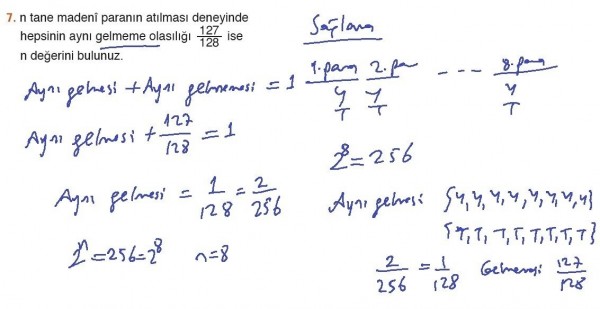 7. n tane madenî paranın atılması deneyinde
hepsinin aynı gelmeme olasılığı 127/128 ise
n değerini bulunuz.
Aynı gelmesi + Aynı gelmemesi = 1
Aynı gelmesi + 127/128 = 1
Aynı gelmesi = 1/128 = 2/256
2^n = 256 = 2^8 n = 8
Sağlama
1. para 2. pa --- 8. para
Y Y Y
T T T
2^8 = 256
Aynı gelmesi {Y, Y, Y, Y, Y, Y, Y, Y}
{T, T, T, T, T, T, T, T}
2/256 = 1/128 Gelmemesi 127/128